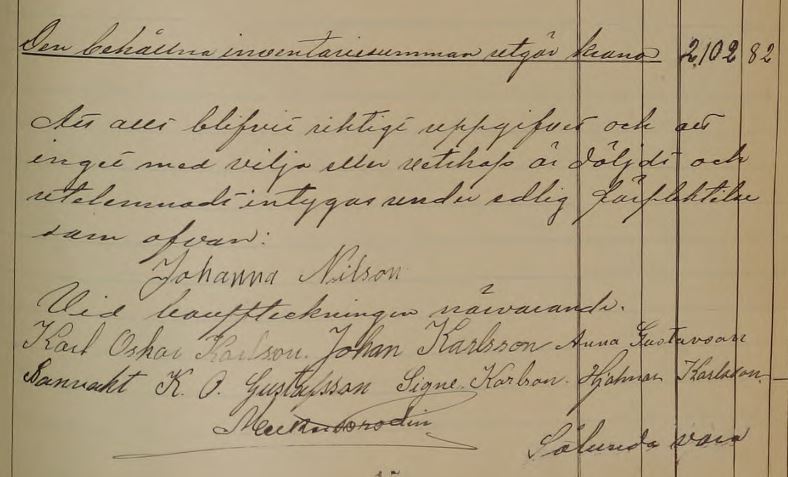 Den behållna inventariesumman utgör kronor 2,102 82
Att allt blifvit riktigt uppgifvet och att
inget med vilja eller vetskap är döljdt och
utelemnadt intygas under edlig förpliktelse
som ofvan:
Johanna Nilson
Vid bouppteckningen närvarande.
Karl Oskar Karlson. Johan Karlsson Anna Gustavson
K. O. Gustafsson Signe Karlson. Hjalmar Karlsson
Sålunda vara